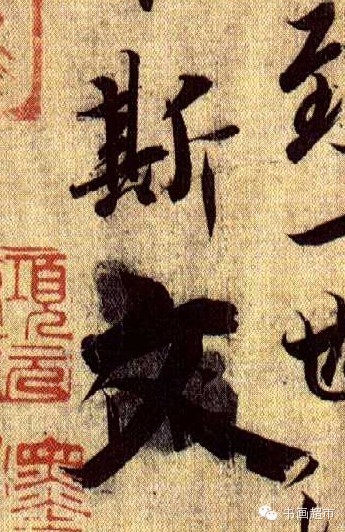 致一也
斯文
項元
墨
书画超市